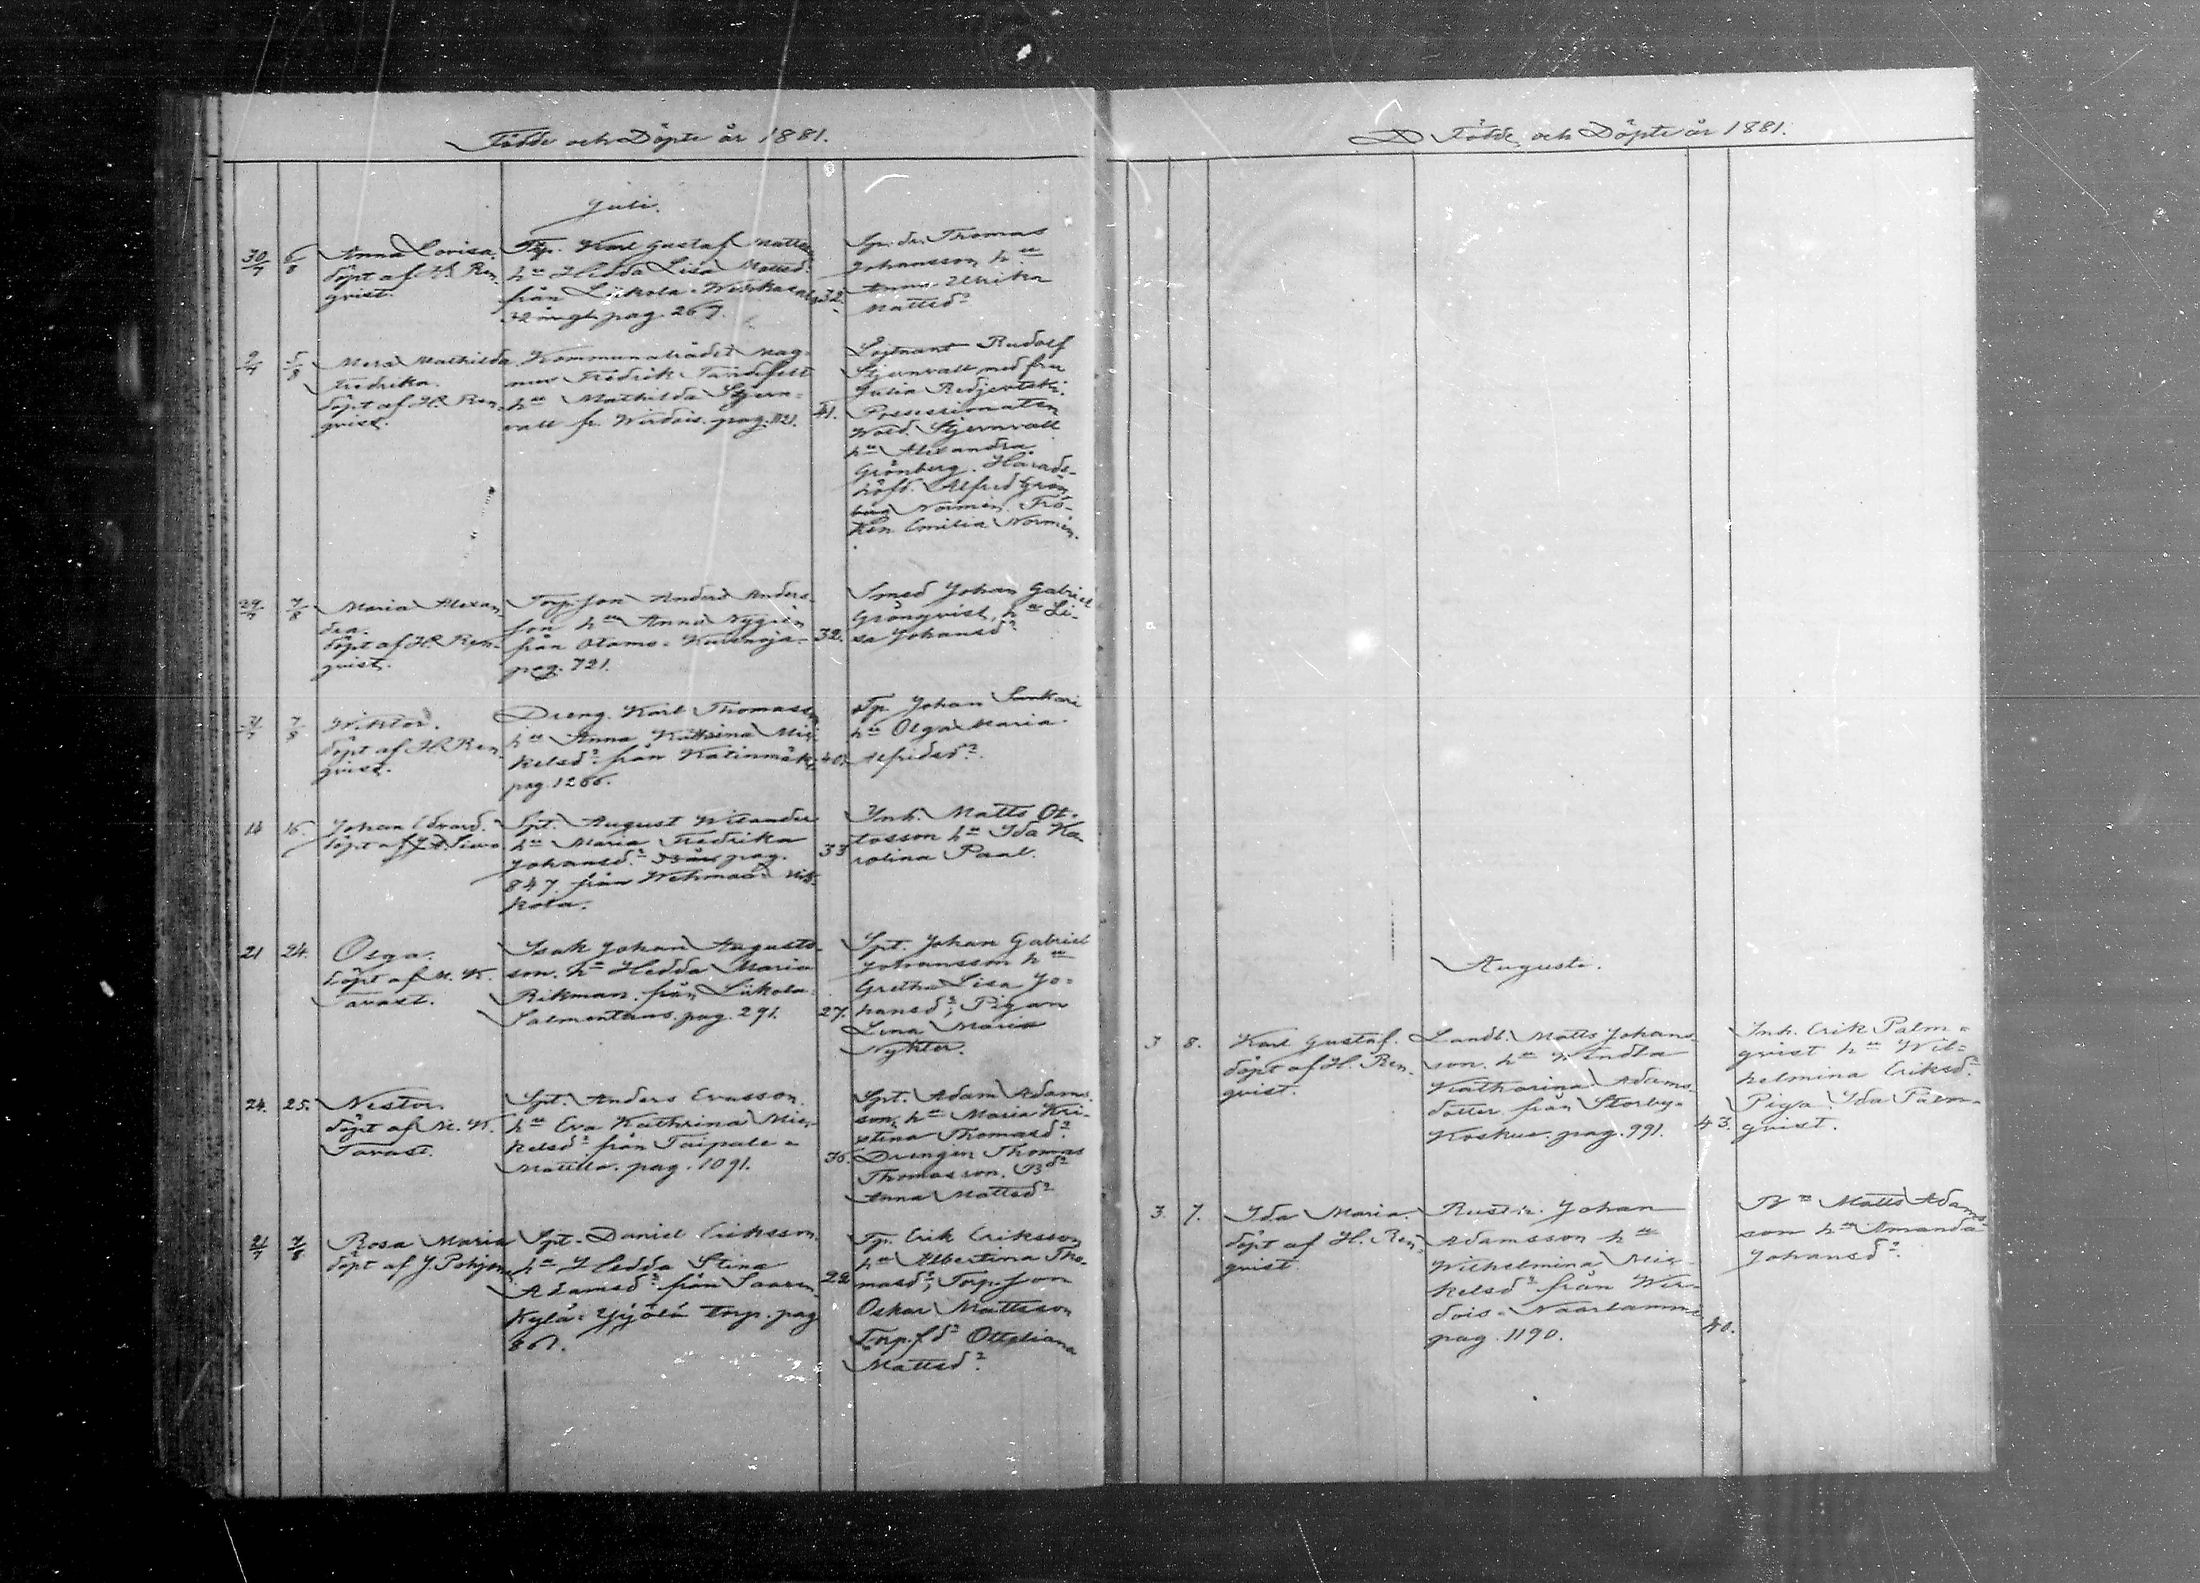 Födde och Döpte år 1881.
Juli.
30/7 6/8 Anna Lovisa. Tp. Karl Gustaf Matts
döpt af H. Ren
qvist.
hu Hedda Lisa Mattsd.
från Liikola
pag. 269.
32.
Johansson hu
Anna Ulrika
Mattsd?
5/8 Mathilda
Fredrika.
döpt af H. Ren
qvist.
Kommunalrådet Mag-
nus Fredrik Tandefelt
hu Mathilda Stjern-
vall fr. Wirdois. pag. 1121.
41.
Löjtnant Rudolf
Stjernvall med fru
Julia
Possessionaten
Wold. Stjernvall
hu Alexandra
Grönberg. Härads-
höfd. Alfred Grön
Normén. Frö-
ken Emilia Normén.
29/7 7/8 Maria Alexan
dra.
döpt af H. Ren-
qvist.
Torp.son Anders Anders
son hu Anna Nygrén
från Otamo-
pag. 721.
32.
Smed Johan Gabriel
Grönqvist, hu Li-
sa Johansd?
7/8 Wiktor.
döpt af H. Ren
qvist.
Dreng. Karl Thomasson
hu Anna Kathrina Mic-
kelsd? från Katinmäki
pag. 1266.
40.
Tp. Johan Sankari
hu Olga Maria
Alfridsd?
14 16. Johan Edvard.
döpt af
Spt. August
hu Maria Fredrika
Johansd? pag.
847. från Wehmaa
kola.
33
Inh. Matts Ot-
tosson hu Ida Ka
rolina Paal.
21 24. Olga.
döpt af M. K.
Tavast.
Isak Johan Augusts-
son. hu Hedda Maria
Rikman. från Liikola-
Salmentaus. pag. 291.
27.
Spt. Johan Gabriel
Johansson hu
Gretha Lisa Jo-
hansd?; Pigan
Lena Maria
Nykter.
24. 25. Nestor.
döpt af M. K.
Tavast.
Spt. Anders Evasson.
hu Eva Kathrina Mic-
kelsd? från Taipale-
Mattila. pag. 1091.
36.
Spt. Adam Adams
son, hu Maria Kri-
stina Thomasd?
Drengen Thomas
Thomasson. Bd?
Anna Mattsd?
21/7 7/8 Rosa Maria
döpt af J. Pohjan
Spt. Daniel Eriksson.
hu Hedda Stina
Adamsd? från Saaren
Kylä: Yijölä torp. pag
861.
22
Tp. Erik Eriksson
hu Albertina Tho-
masd?; Torp.son
Oskar Mattsson
Torp.fd? Otteliana
Mattsd?
Födde och Döpte år 1881.
Augusti.
3 8. Karl Gustaf.
döpt af H. Ren-
qvist.
Landb. Matts Johans
son. hu Wendla
Katharina Adams
dotter från Storby-
Koskue. pag. 991.
43.
Inh. Erik Palm-
qvist hu Wil-
helmina Eriksd?
Piga Ida Palm-
qvist.
3. 7. Ida Maria.
döpt af H. Ren-
qvist.
Rust.h. Johan
Adamsson hu
Wilhelmina Mic-
kelsd? från Wir-
dois-
pag. 1190.
40.
Matts Adams-
son hu Amanda
Johansd?